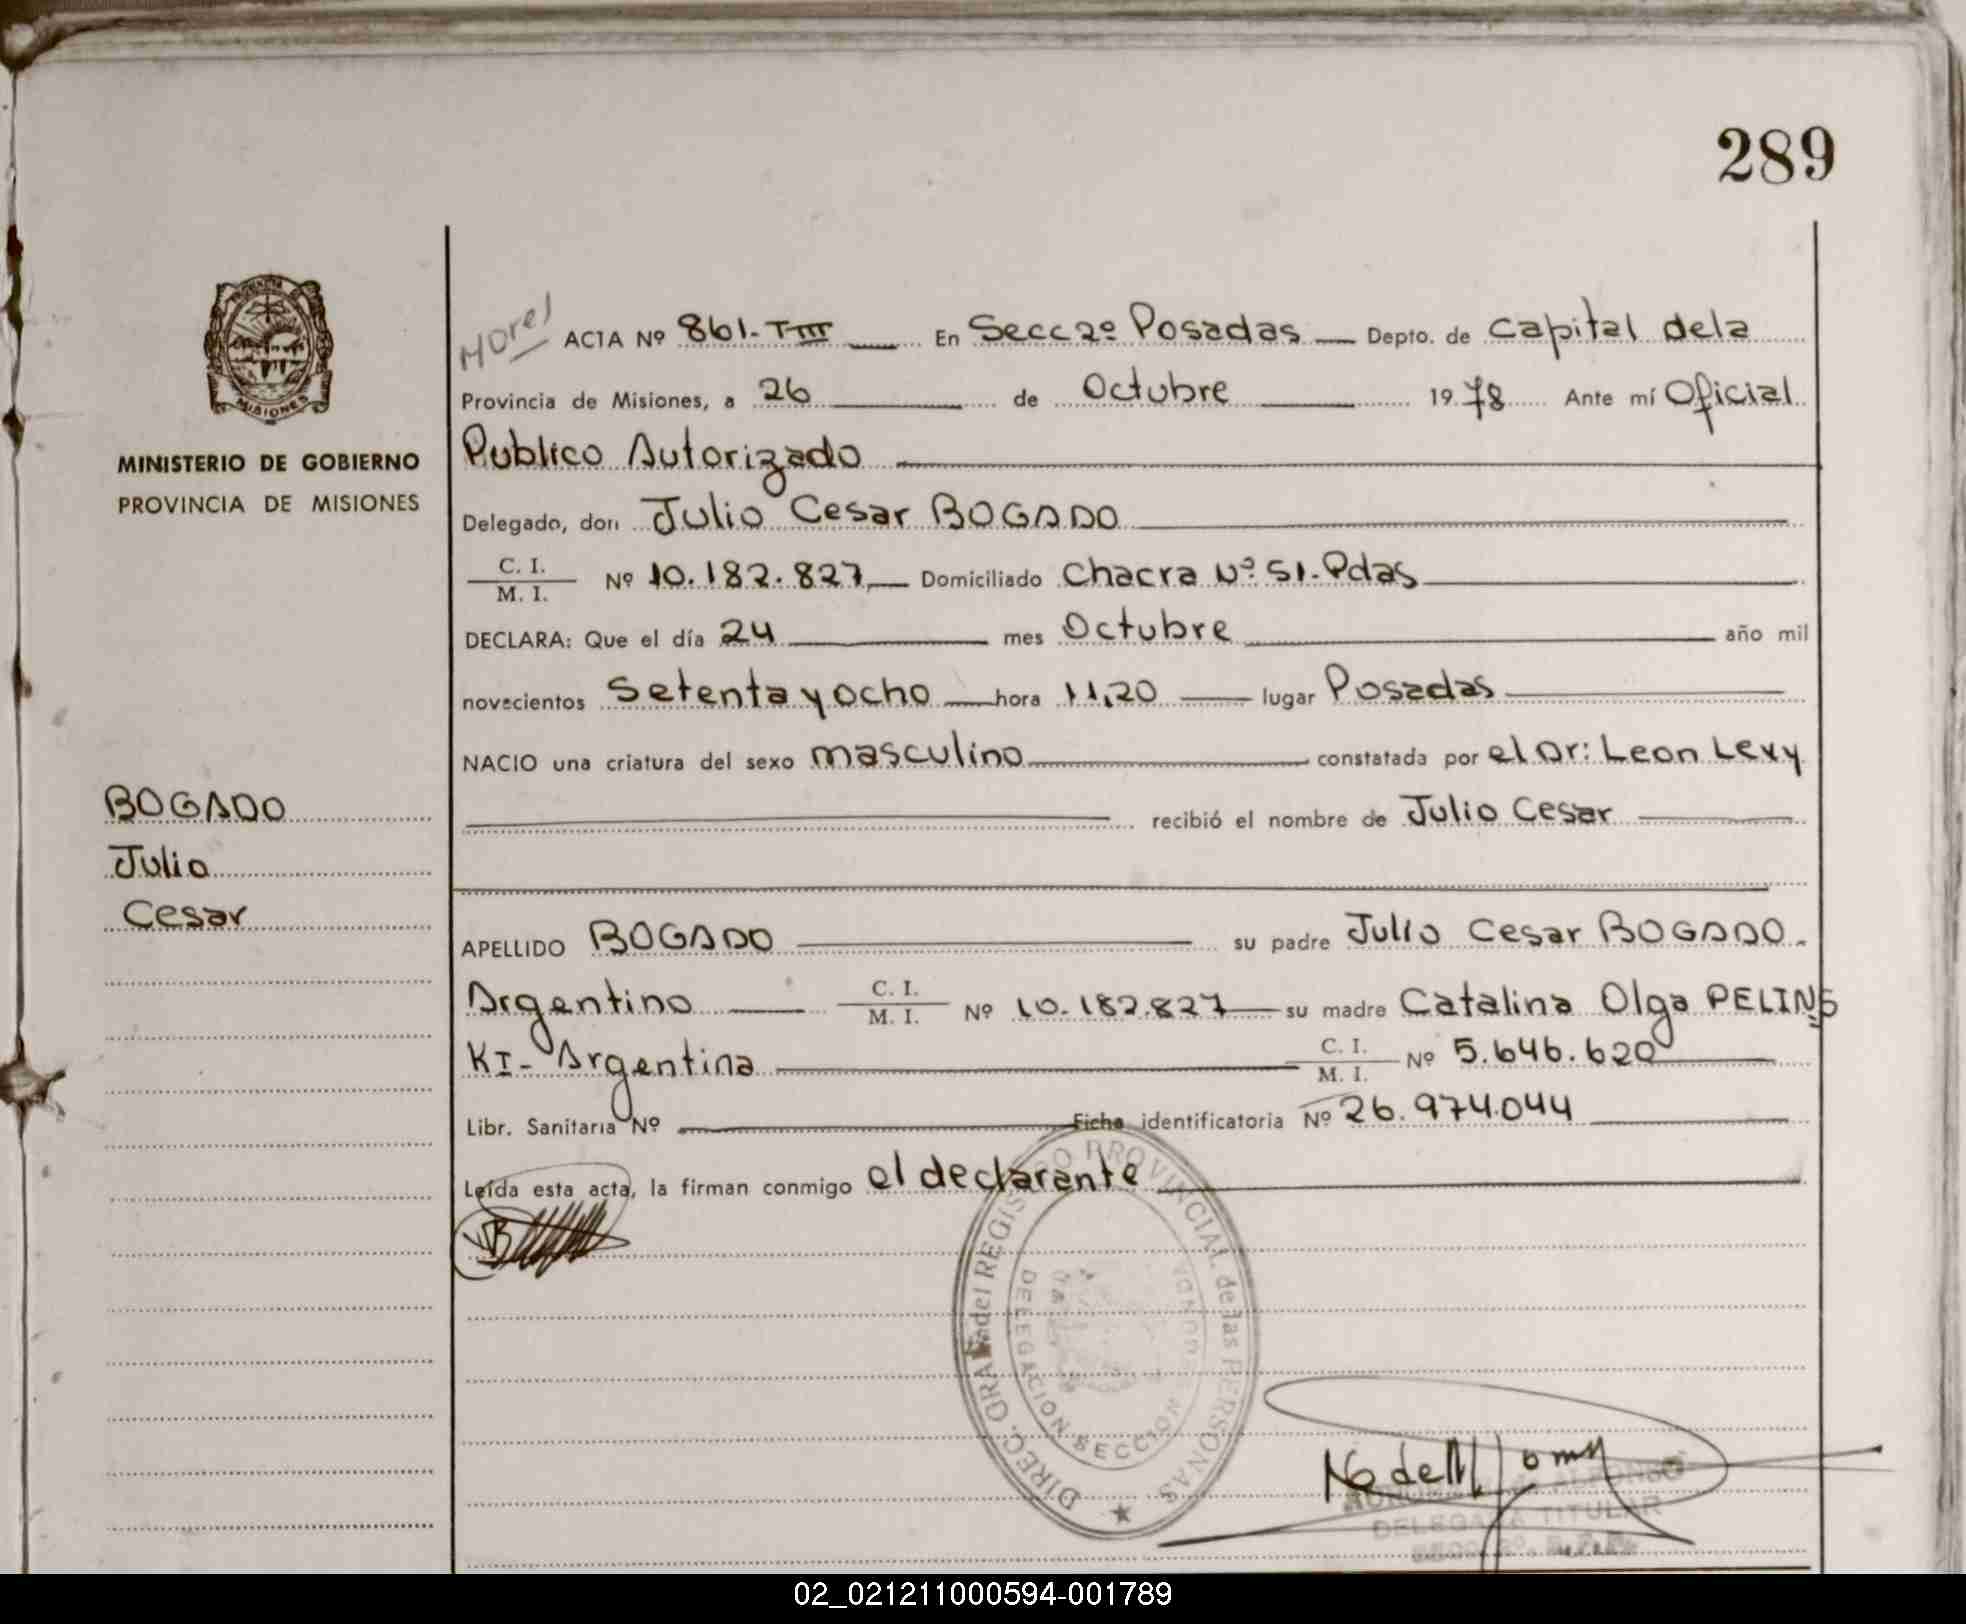 289
PROVINCIA DE
MISIONES
MINISTERIO DE GOBIERNO
PROVINCIA DE MISIONES
BOGADO
Julio
Cesar
ACTA Nº 861-TIII En Secc 2º Posadas Depto. de Capital dela
Provincia de Misiones, a 26 de Octubre 1978 Ante mí Oficial
Publico Autorizado
Delegado, don Julio Cesar BOGADO
C. I. / M. I. Nº 10.182.827 Domiciliado Chacra Nº 51-Pdas
DECLARA: Que el día 24 mes Octubre año mil
novecientos Setenta y ocho hora 11,20 lugar Posadas
NACIO una criatura del sexo masculino constatada por el Dr: Leon Levy
recibió el nombre de Julio Cesar
APELLIDO BOGADO su padre Julio Cesar BOGADO-
Argentino C. I. / M. I. Nº 10.182.827 su madre Catalina Olga PELINS
KI- Argentina C. I. / M. I. Nº 5.646.620
Libr. Sanitaria Nº Ficha identificatoria Nº 26.974.044
Leída esta acta, la firman conmigo el declarante
DIREC. GRAL. del REGISTRO PROVINCIAL de las PERSONAS
DELEGACION SECCION SEGUNDA
de ALFONSO
DELEGADA TITULAR
SECC. 2º.
02_021211000594-001789